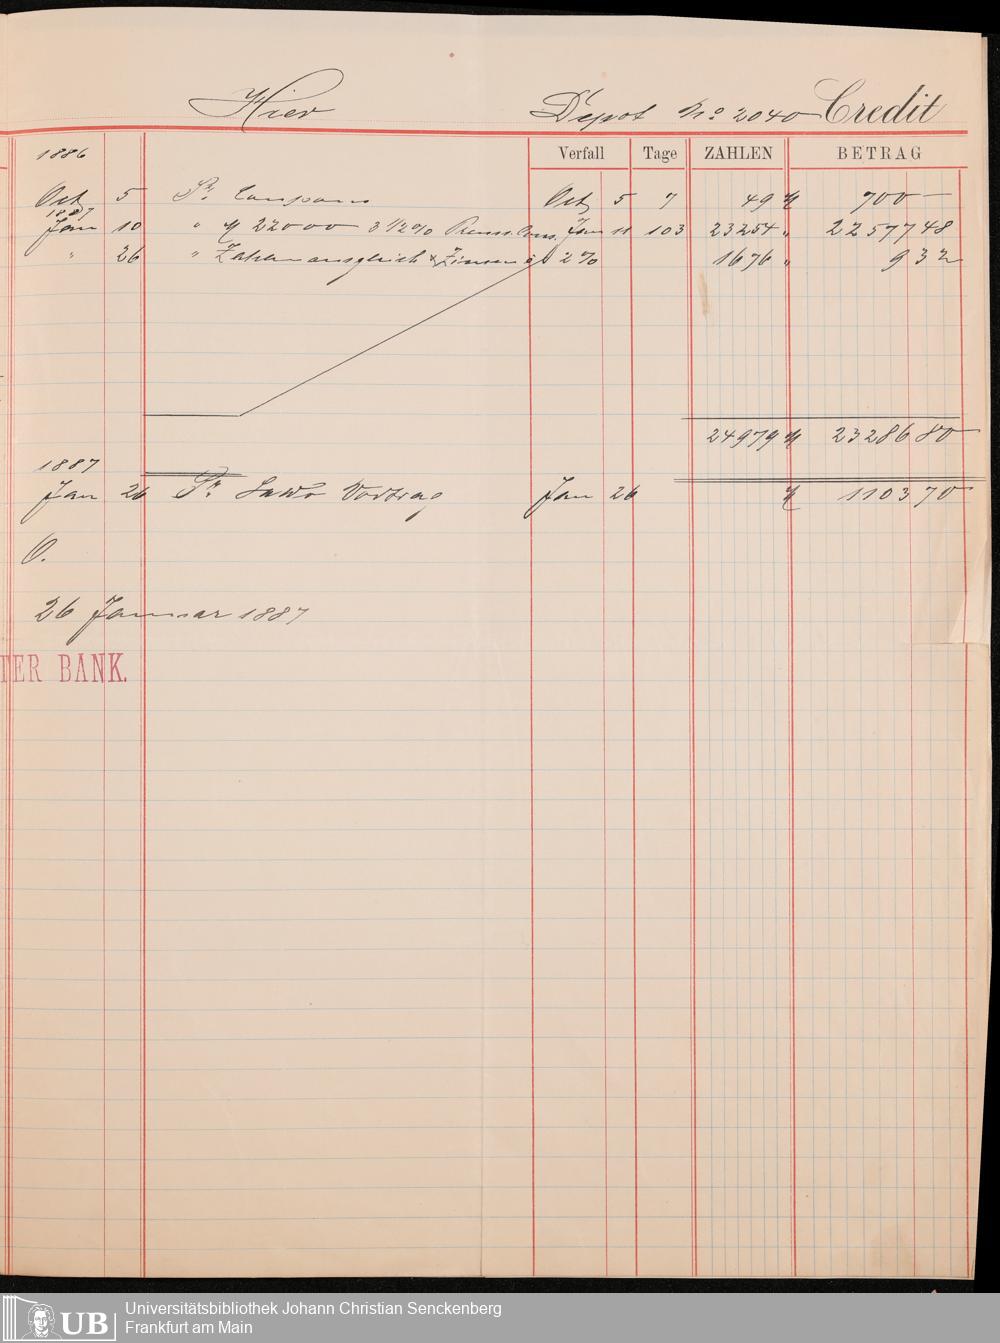 Hier Depot No 2040 Credit
1886 Verfall Tage ZAHLEN BETRAG
Oct 5 Pr Coupons Oct 5 7 49 ℳ 700 —
1887
Jan 10 " ℳ 22000 3 1/2 % Preuss. Cons. Jan 11 103 23254 " 22577 48
" 26 " Zahlenausgleich & Zinsen à 2% 1676 " 9 32
24979 ℳ 23286 80
1887
Jan 26 Pr Saldo Vortrag Jan 26 ℳ 1103 70
O.
26 Januar 1887
TER BANK.
UB
Universitätsbibliothek Johann Christian Senckenberg
Frankfurt am Main